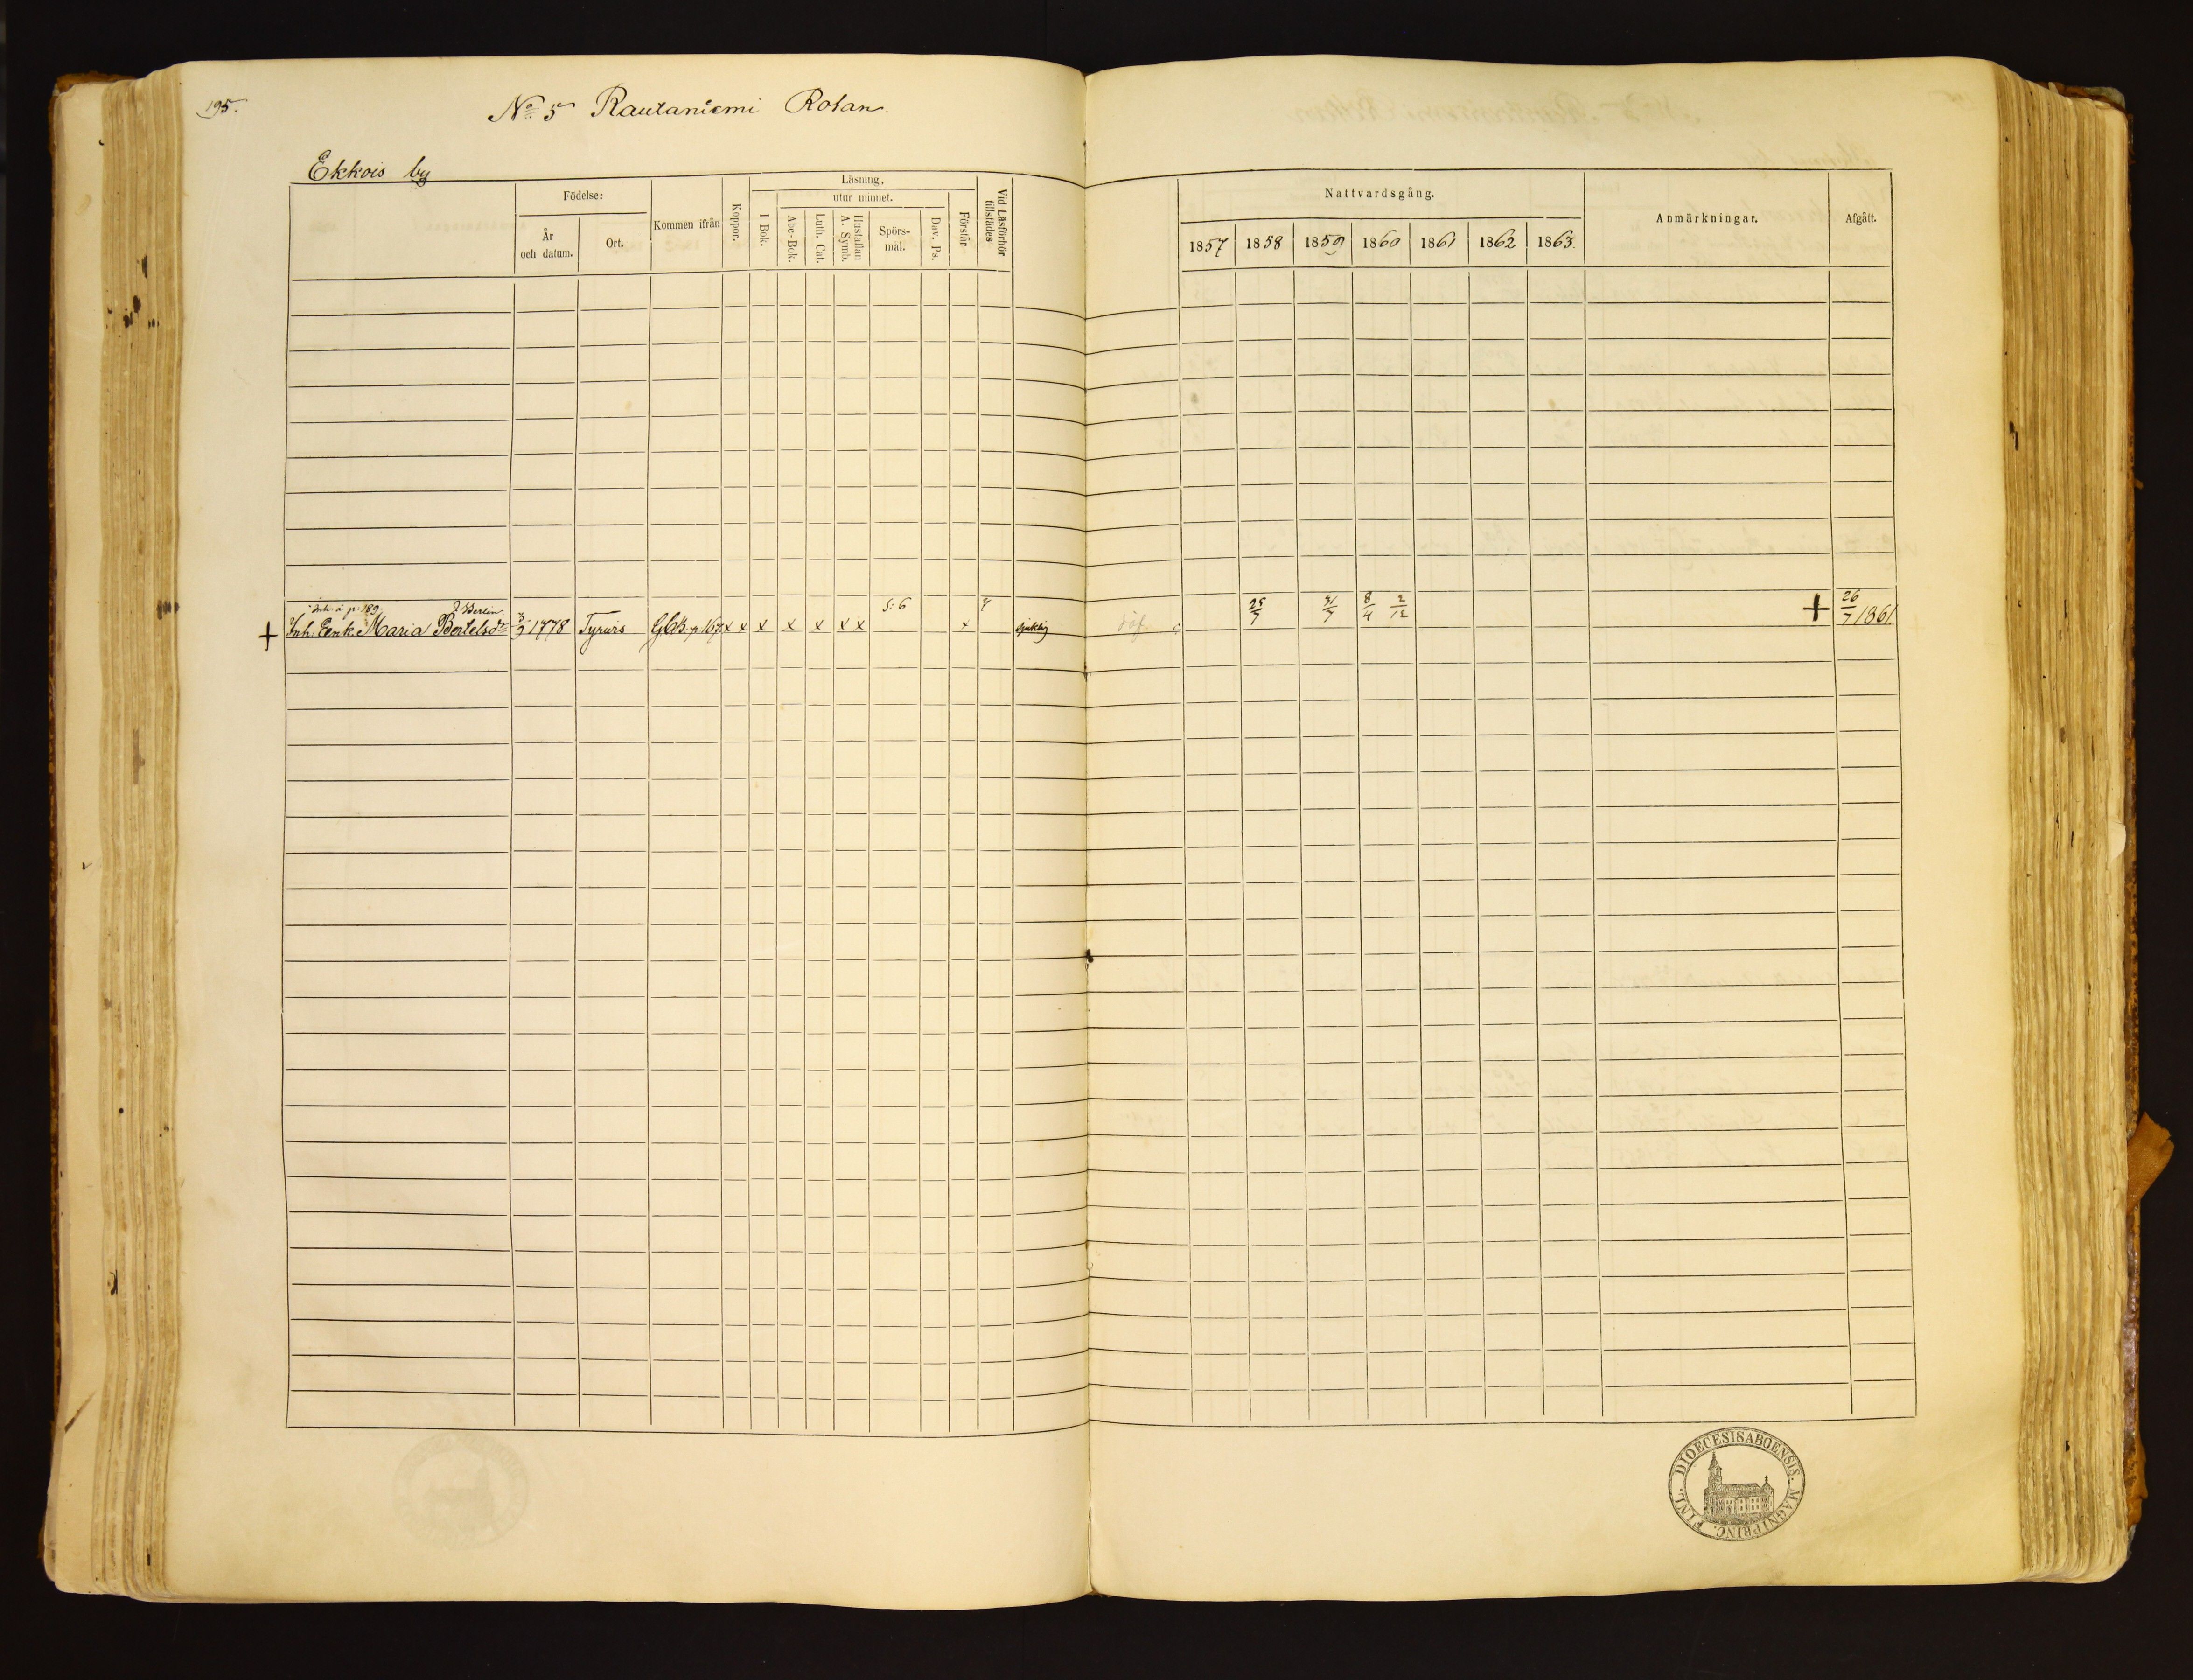 195.
No 5 Rautaniemi Rotan.
Ekkois by
Födelse:
År och datum.
Ort.
Kommen ifrån
Koppor.
Läsning,
I Bok.
utur minnet.
Abc-Bok.
Luth. Cat.
Hustaflan A. Symb.
Spörs- mål.
Dav. Ps.
Förstår
Vid Läsförhör tillstädes
Nattvardsgång.
1857 1858 1859 1860 1861 1862 1863.
Anmärkningar.
Afgått.
Inh. å p. 189. Berlin
+ Inh. Enk. Maria Bertelsdr 1778 Tyrwis GKB p 167 x x x x x x x 5: 6 x 7 sjuklig
25/7 31/7 8/4 2/12 + 26/7 1861
DIOECESIS ABOENSIS. MAGNI PRINC. FINL.